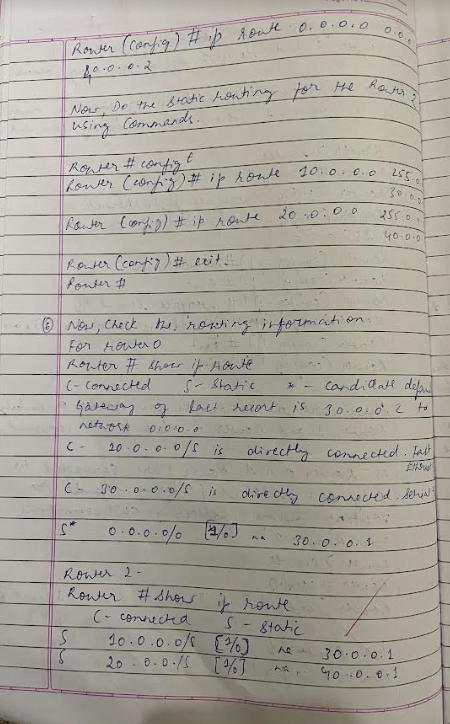 Router (config) # ip route 0.0.0.0 0.0.0
40.0.0.2
Now, Do the static routing for the Router 2
using Commands.
Router # config t
Router (config) # ip route 10.0.0.0 255.0
30.0.0
Router (config) # ip route 20.0.0.0 255.0.0
40.0.0
Router (config) # exit.
Router #
Now, check the routing information
For router 0
Router # show ip route
C-connected S-Static * - candidate defau
Gateway of last resort is 30.0.0.2 to
network 0.0.0.0
C- 10.0.0.0/8 is directly connected. Fast
Ethernet
C- 30.0.0.0/8 is directly connected. Serial
S* 0.0.0.0/0 [1/0] via 30.0.0.1
Router 2 -
Router # Show ip route
C- connected S-Static
S 10.0.0.0/8 [1/0] via 30.0.0.1
S 20.0.0./8 [1/0] via 40.0.0.1